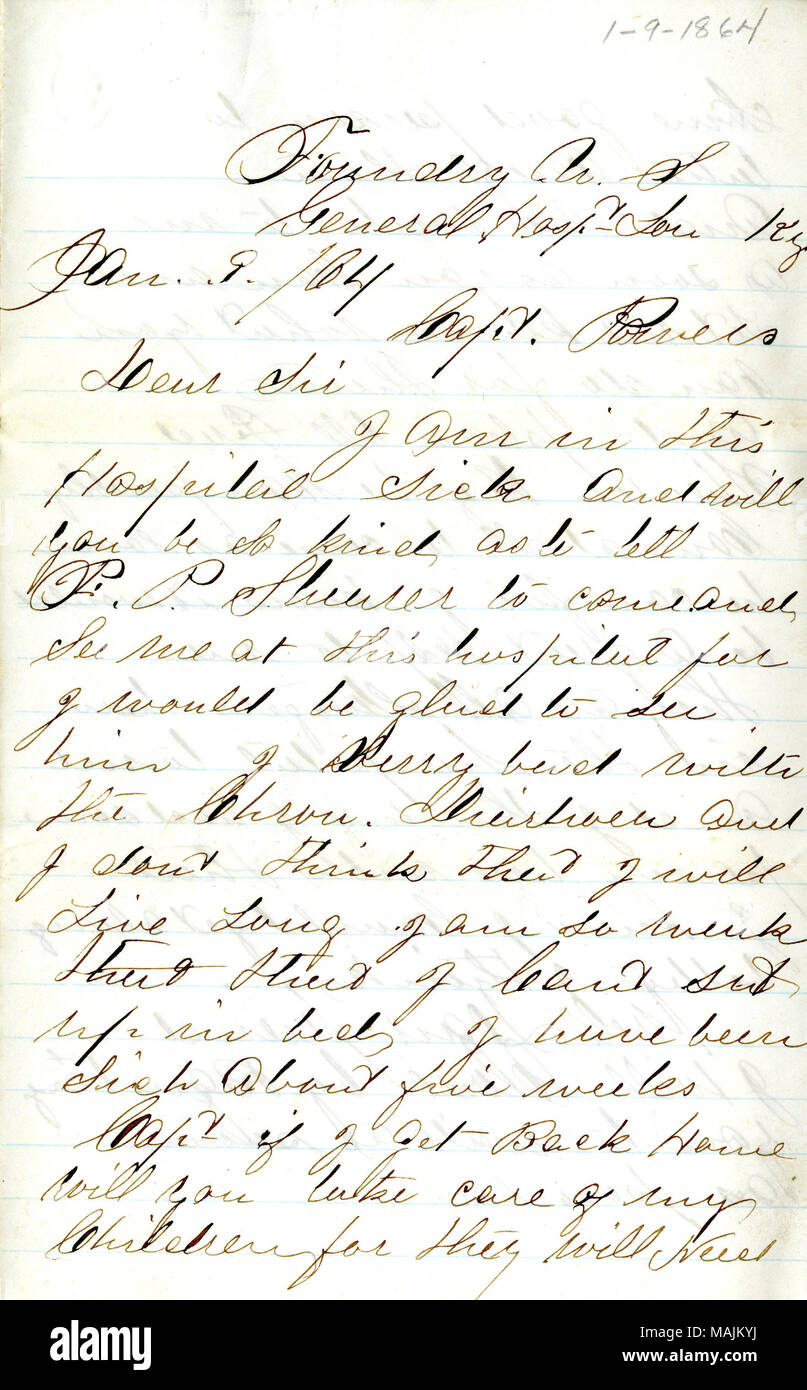 1-9-1864
Foundry U. S
General Hospt Lou Ky
Jan. 9. /64
Capt. Powers
Dear Sir
I am in this
Hospital Sick and will
you be so kind as to tell
P. P. Sheurer to come and
See me at this hospital for
I would be glad to see
him I verry bad with
the Chron. and
I dont think that I will
Live Long I am so weak
that that I Can't sit
up in bed I have been
Sick About five weeks
Capt if I get Back Home
will you take care of my
Children for they will Need
alamy
Image ID: MAJKYJ
www.alamy.com